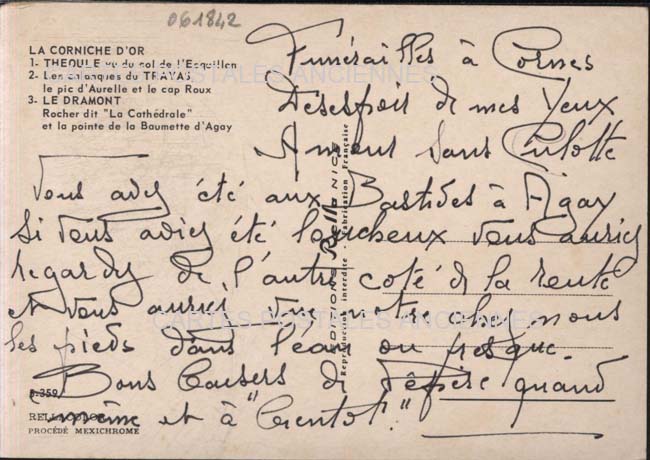 061842
LA CORNICHE D'OR
1- THEOULE vu du col de l'Esquillon
2- Les calanques du TRAYAS,
le pic d'Aurelle et le cap Roux
3- LE DRAMONT
Rocher dit "La Cathédrale"
et la pointe de la Baumette d'Agay
CARTES POSTALES ANCIENNES
Funérailles à Cornes
Desespoir de mes Yeux
Amour sans Culotte
Vous aviez été aux Bastides à Agay
Si vous aviez été loucheux vous auriez
regardez de l'autre coté de la route
et vous auriez vu notre chez nous
les pieds dans l'eau ou presque.
Bons Baisers de quand
même et à "Bientot!"
CARTES POSTALES ANCIENNES
EDITIONS Rella NICE
Reproduction interdite - Fabrication Française
S-359
RELLACOLOR
PROCÉDÉ MEXICHROME